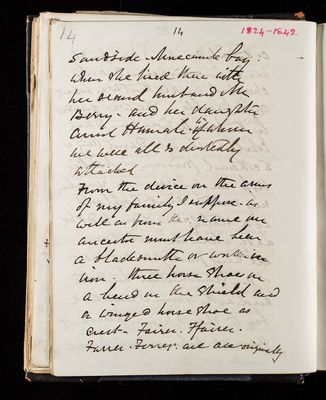 14
14
1824-1842
Sandside Morecambe bay:
when she lived there with
her second husband Mr
Berry - and her daughter
Annie Hannah - of whom
we were all so devotedly
attached
From the device on the arms
of my family I suppose as
well as from the name our
ancestor must have been
a blacksmith or worker in
iron: three horse shoes on
a bend on the shield and
a winged horse shoe as
crest - Fairer. Ffairer.
Farrer. Ferrers. are all originally